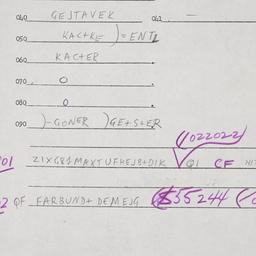 040 GEJTAVEK 041 —
050 KACTKE )=ENTL
060 KACTER
070 O
080 O
090 )-GONER )GETSTER
(1022022)
01 21XG81MAXTUFHEJ8+D1K Q1 CF
02 QF FARBUND+ DEMEJG 55244